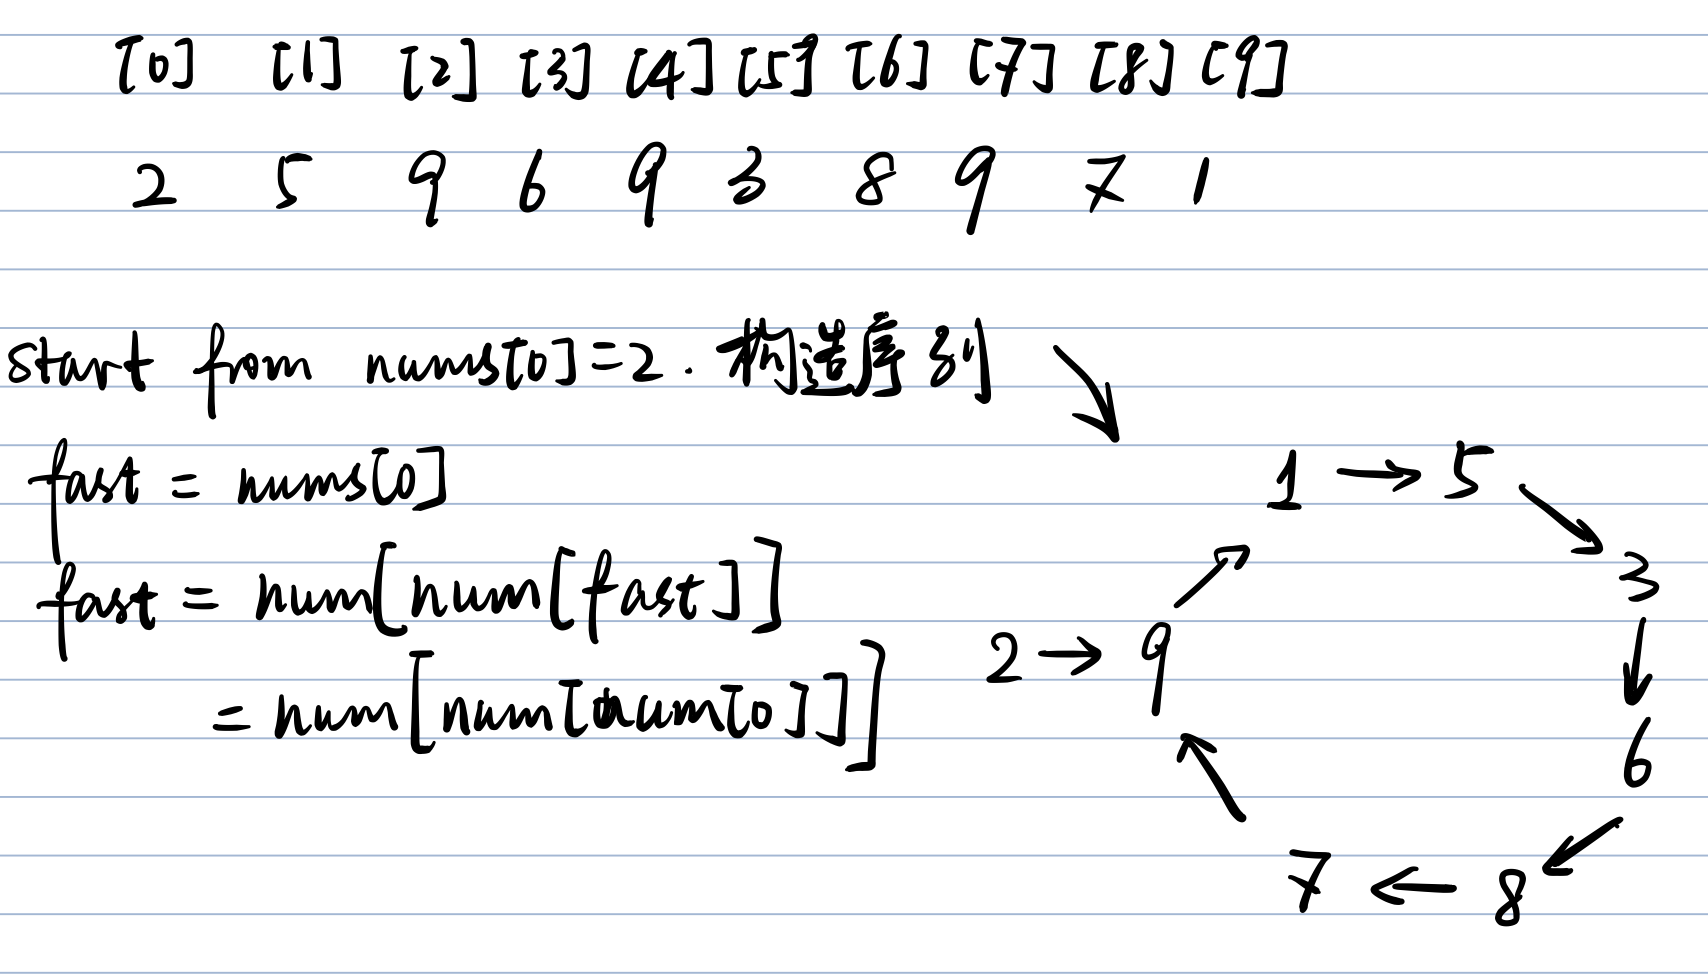 [0] [1] [2] [3] [4] [5] [6] [7] [8] [9]
2 5 9 6 9 3 8 9 7 1
start from nums[0]=2. 构造序列
fast = nums[0]
1 → 5
fast = num[num[fast]]
3
2 → 9
= num[num[num[0]]]
6
7 ← 8